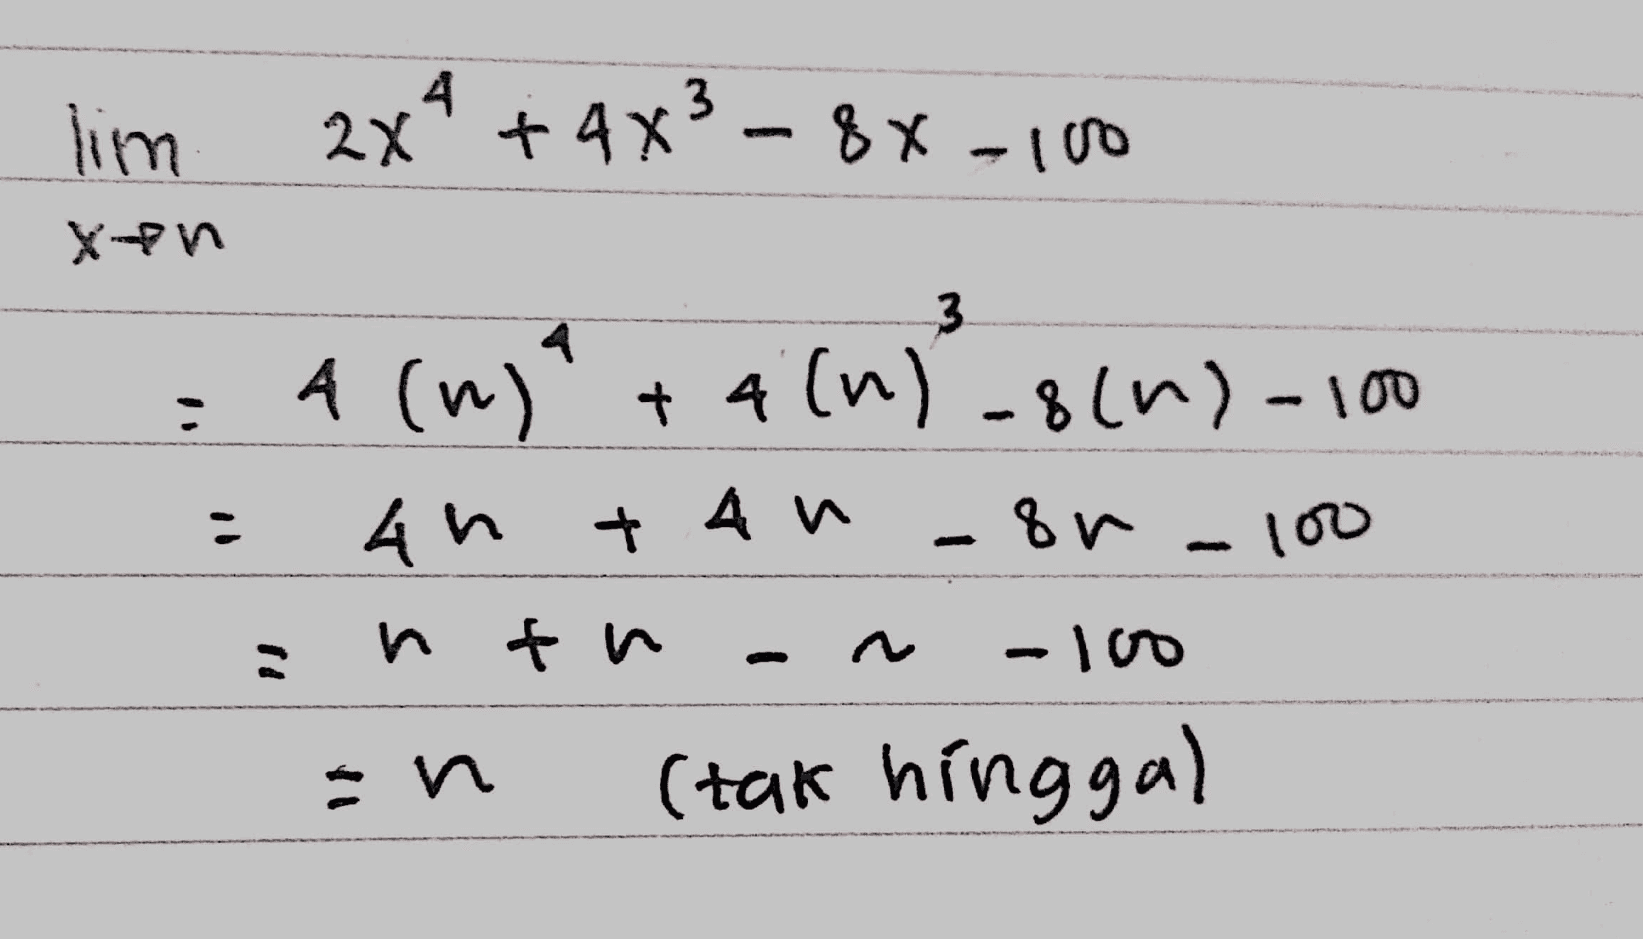 lim 2x⁴ + 4x³ - 8x - 100
x→n
= 4 (n)⁴ + 4 (n)³ - 8(n) - 100
= 4n + 4n - 8n - 100
= n + n - n - 100
= n (tak hingga)